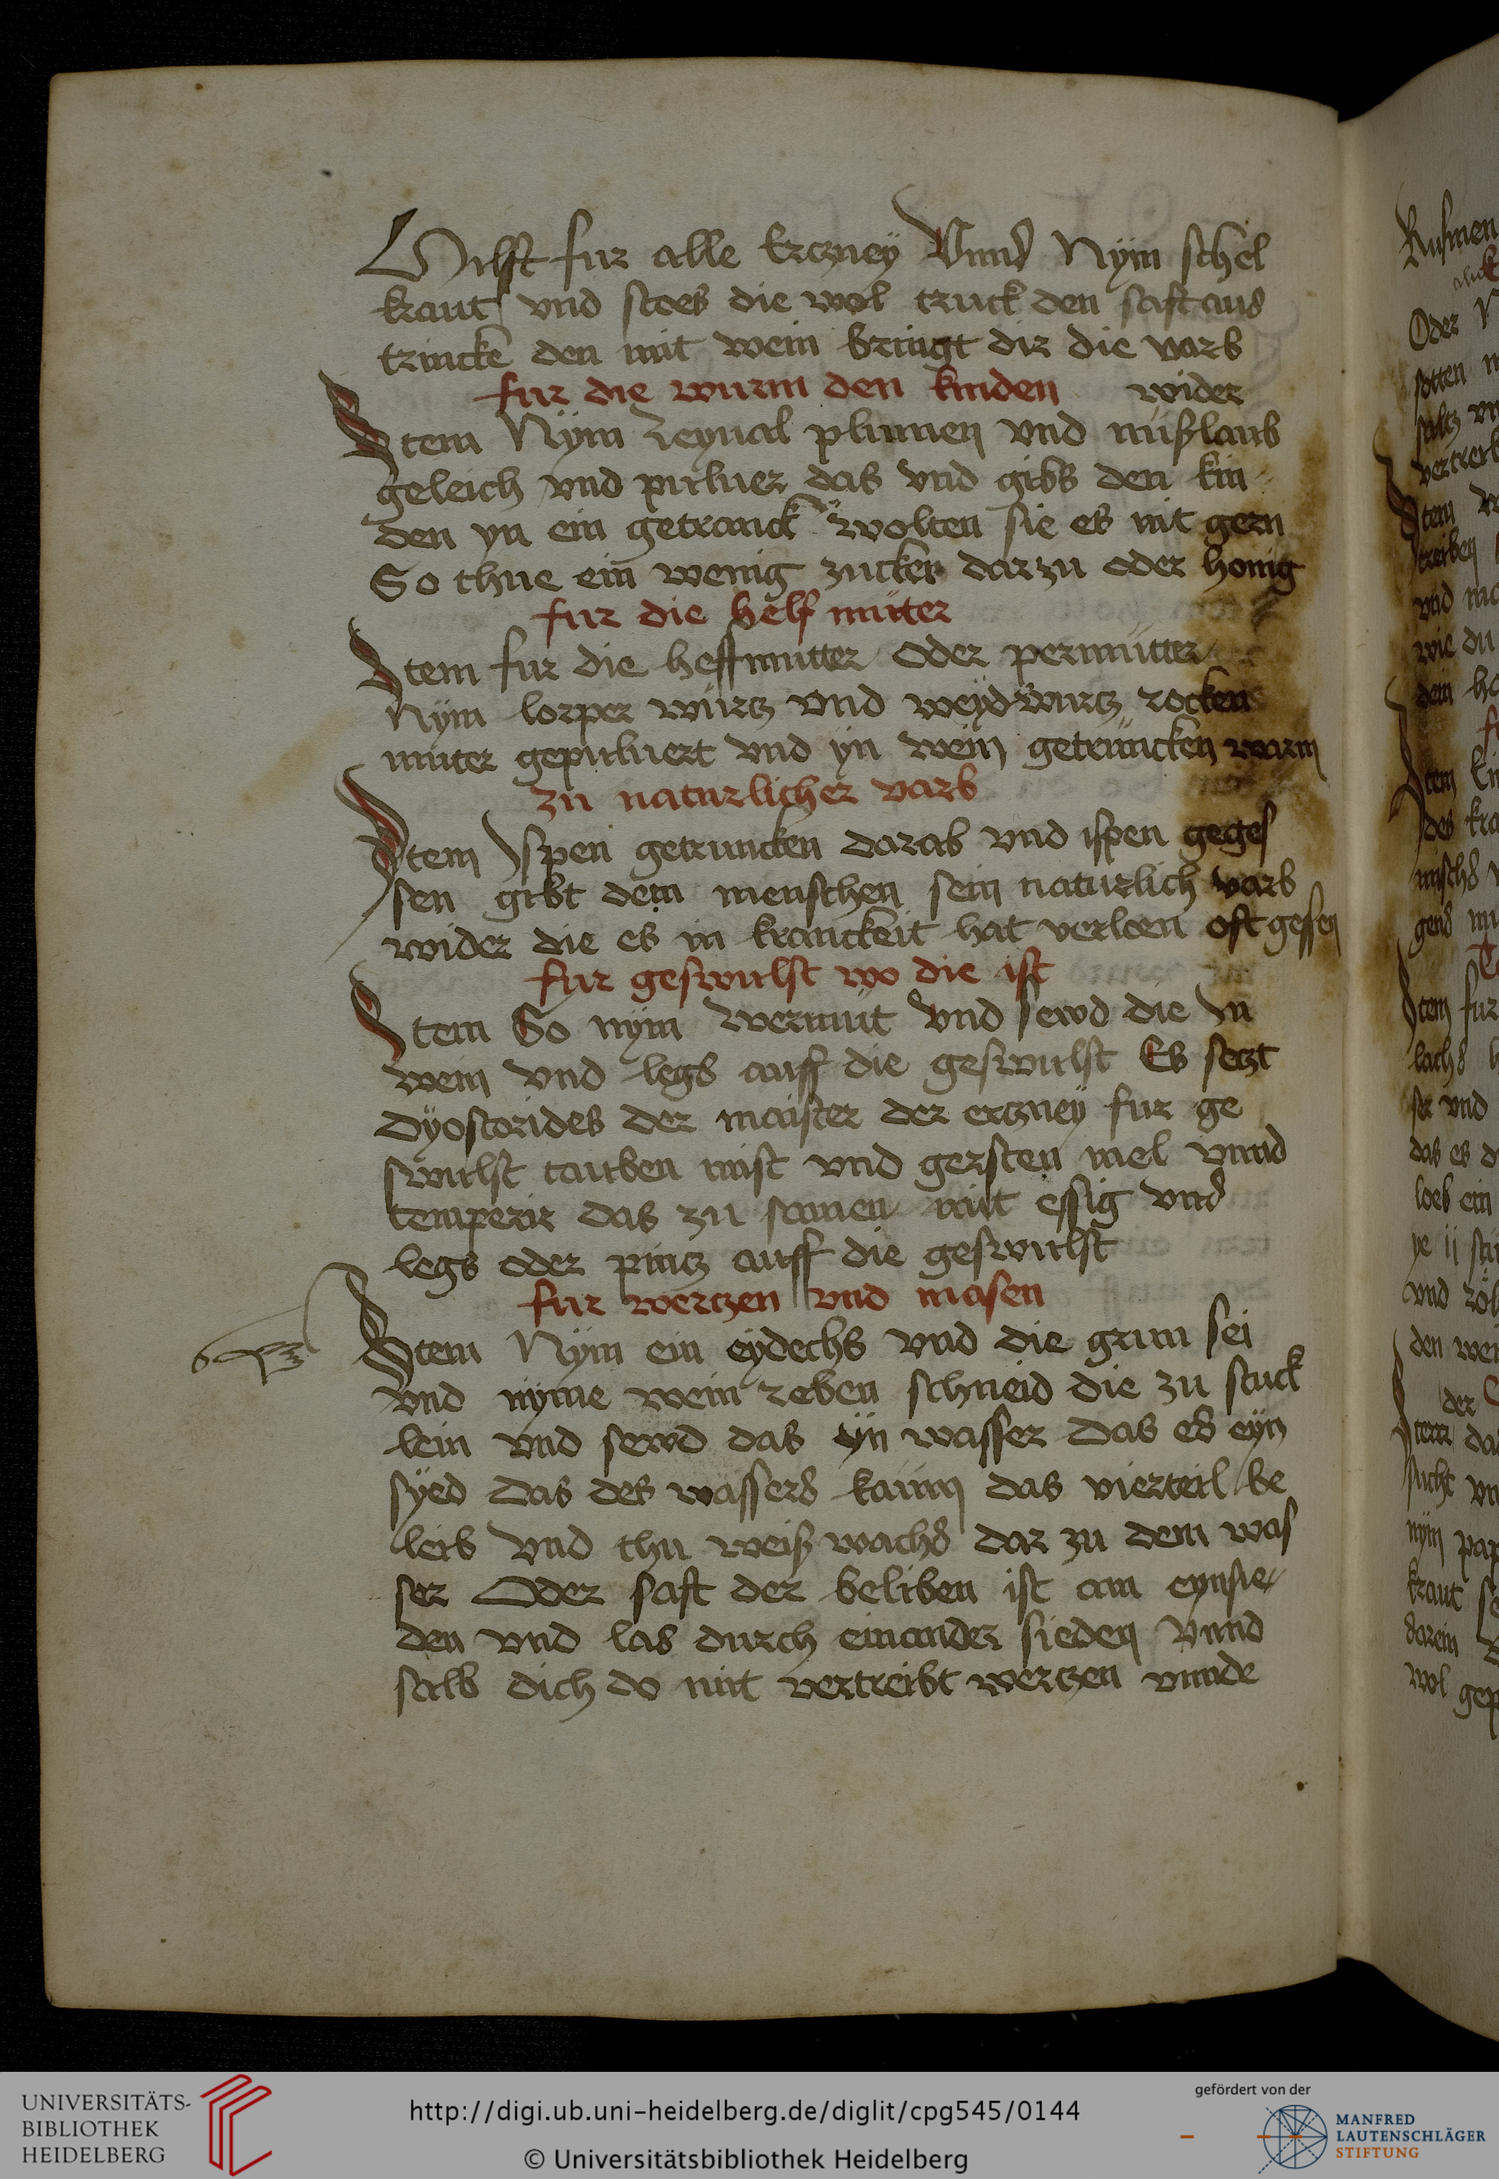 Hilfft fur alle Erczney Vnnd Nÿm schel
kraut vnd stoes die wol truck den saft aus
trincke den mit wein bringt dir die varb
fur die wurm den kinden wider
Item Nÿm Reynal plumen vnd nußlaub
geleich vnd puluer das vnd gibs den kin
den yn ein getranck wolten sie es nit gern
So thue ein wenig zucker darzu oder honig
fur die helf muter
Item fur die heffmutter oder permutter
Nÿm lorper wurtz vnd weÿdwurtz rocken
muter gepuluert vnd ÿn wein getruncken warm
zu naturlicher varb
Item Jspen getruncken darab vnd ispen geges
sen gibt dem menschen sein naturlich varb
wider die es in kranckeit hat verloen oft gessen
fur geswulst wo die ist
Item So nÿm wermut vnd sewd die In
wein vnd legs auff die geswulst Es setzt
Dÿoscorides der maister der erczneÿ fur ge
swulst tauben mist vnd gersten mel vnnd
temperir das zu samen mit essig vnd
legs oder pintz auff die geswulst
fur wertzen vnd masen
Item Nÿm ein eÿdechs vnd die grun sei
vnd nyme wein reben schneid die zu stuck
lein vnd sewd das ÿn wasser Das es eÿn
sÿed Das des wassers kaum das vierteil be
leib vnd thu weiß wachs dar zu dem was
ser Oder saft der beliben ist am eynsie
den vnd las durch einander sieden Vnnd
salb dich do mit vertreibt wertzen vnnde
Rufmen
Oder
sotten
saltz
vertreib
Item
treiben
vnd
wie du
dem
Item
des
gens
Item fur
ser vnd
das es
loeb ein
ye ij
vnd
den wei
der
Item
sucht
nÿm pap
kraut
darein
wol gep
UNIVERSITÄTS-
BIBLIOTHEK
HEIDELBERG
http://digi.ub.uni-heidelberg.de/diglit/cpg545/0144
© Universitätsbibliothek Heidelberg
gefördert von der
MANFRED
LAUTENSCHLÄGER
STIFTUNG